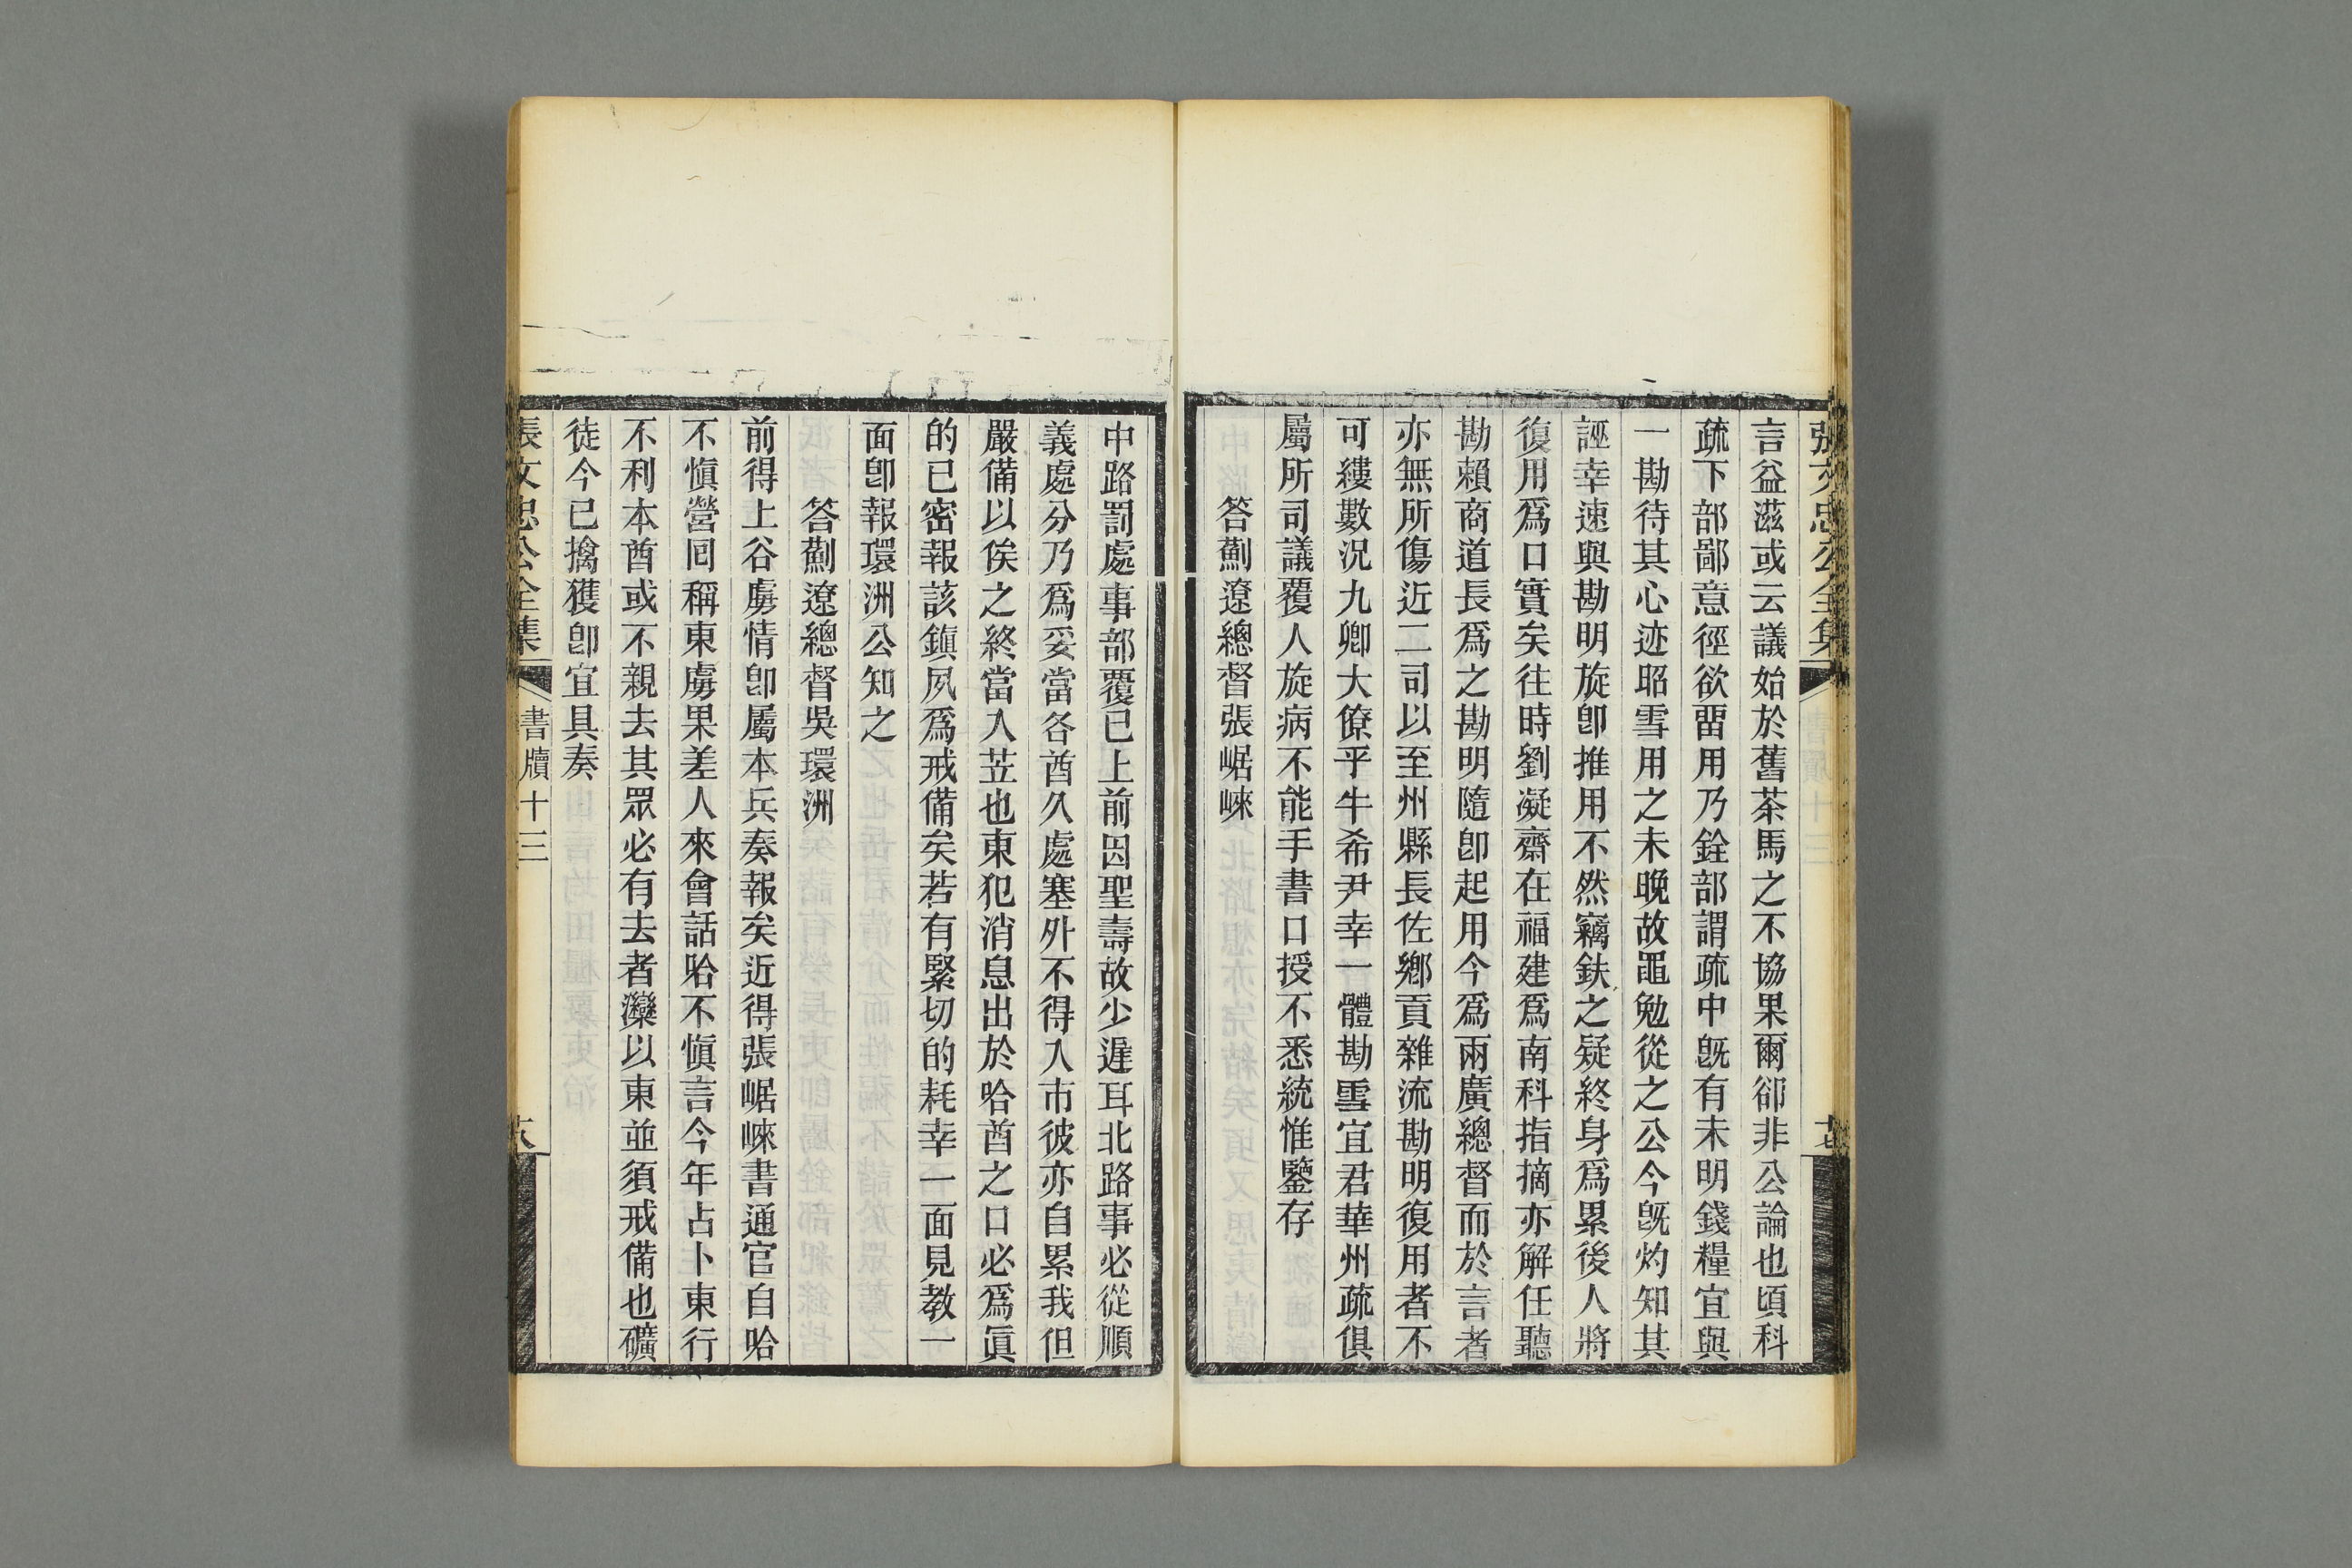 張文忠公全集
言益滋或云議始於舊茶馬之不協果爾卻非公論也頃科
疏下部鄙意徑欲畱用乃銓部謂疏中旣有未明錢糧宜與
一勘待其心迹昭雪用之未晚故黽勉從之公今旣灼知其
誣幸速與勘明旋卽推用不然竊鈇之疑終身爲累後人將
復用爲口實矣往時劉凝齋在福建爲南科指摘亦解任聽
勘賴商道長爲之勘明隨卽起用今爲兩廣總督而於言者
亦無所傷近二司以至州縣長佐鄉貢雜流勘明復用者不
可縷數況九卿大僚乎牛希尹幸一體勘雪宜君華州疏俱
屬所司議覆人旋病不能手書口授不悉統惟鑒存
答薊遼總督張崌崍
中路罰處事部覆已上前因聖壽故少遲耳北路事必從順
義處分乃爲妥當各酋久處塞外不得入市彼亦自累我但
嚴備以俟之終當入苙也東犯消息出於哈酋之口必爲眞
的已密報該鎭夙爲戒備矣若有緊切的耗幸一面見教一
面卽報環洲公知之
答薊遼總督吳環洲
前得上谷虜情卽屬本兵奏報矣近得張崌崍書通官自哈
不愼營囘稱東虜果差人來會話哈不愼言今年占卜東行
不利本酋或不親去其眾必有去者灤以東並須戒備也礦
徒今已擒獲卽宜具奏
張文忠公全集
書牘十三